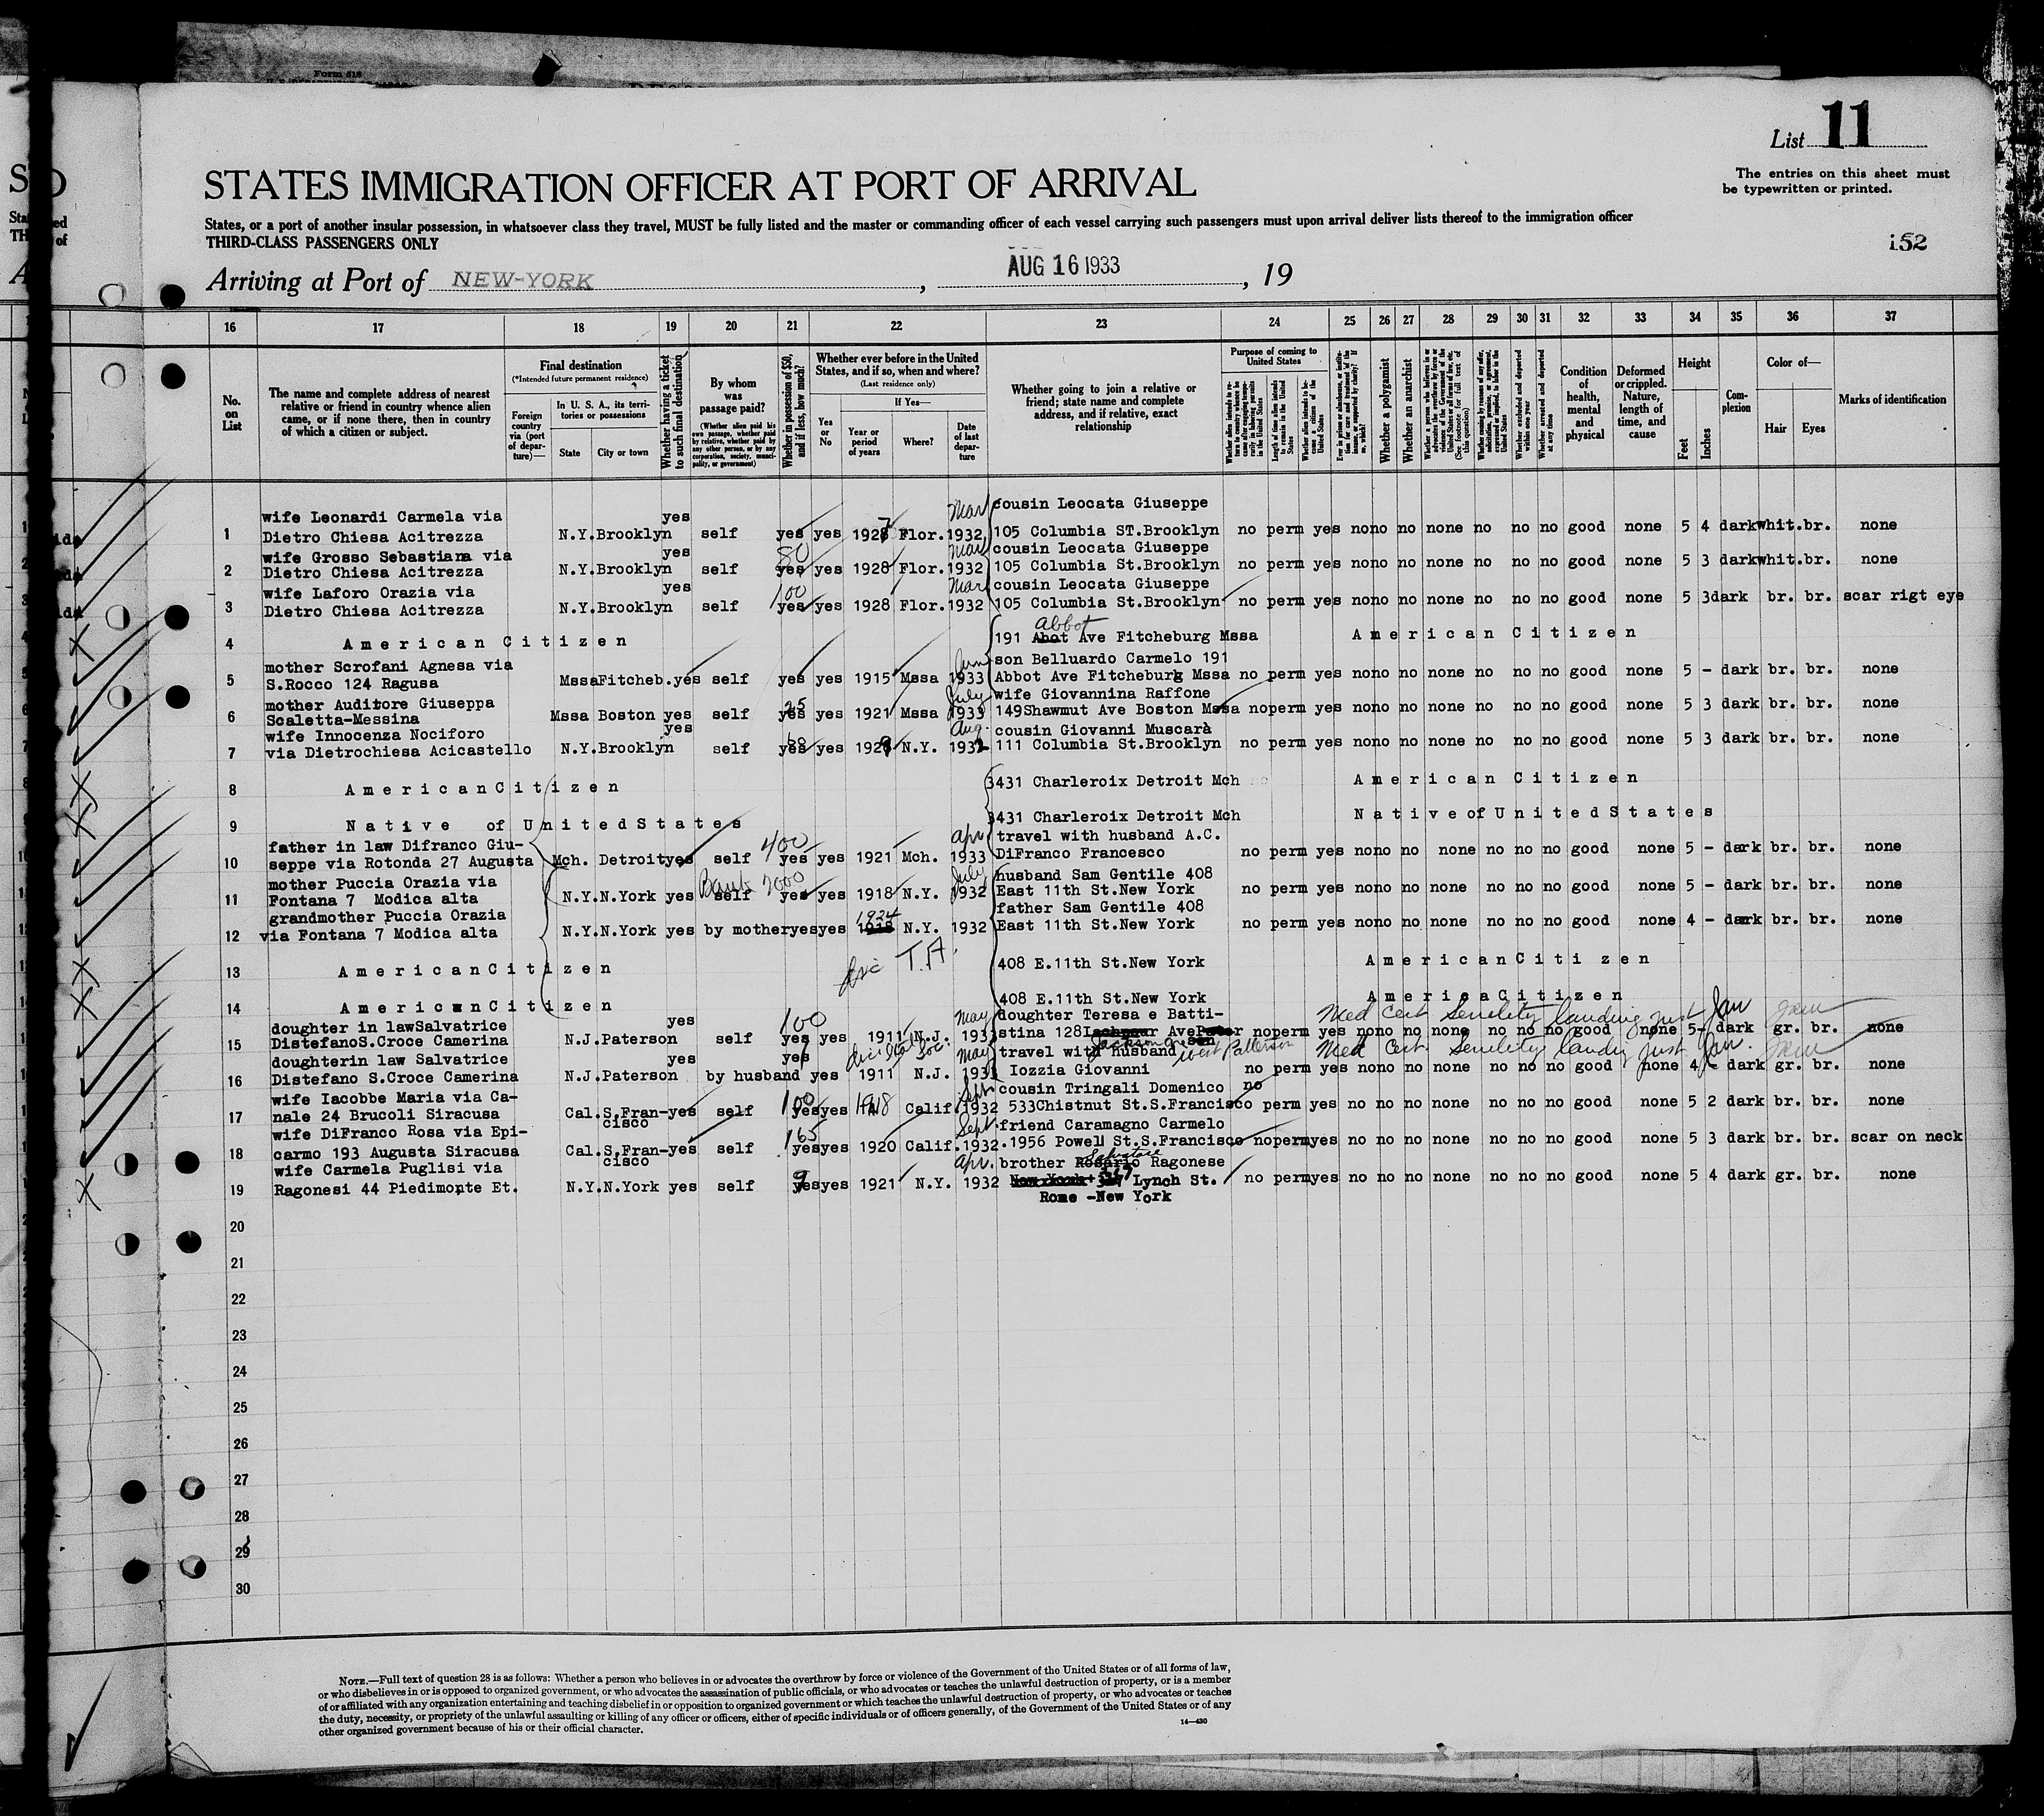 Form 518
List 11
The entries on this sheet must
be typewritten or printed.
STATES IMMIGRATION OFFICER AT PORT OF ARRIVAL
States, or a port of another insular possession, in whatsoever class they travel, MUST be fully listed and the master or commanding officer of each vessel carrying such passengers must upon arrival deliver lists thereof to the immigration officer
THIRD-CLASS PASSENGERS ONLY
152
Arriving at Port of NEW-YORK, AUG 16 1933, 19
16 17 18 19 20 21 22 23 24 25 26 27 28 29 30 31 32 33 34 35 36 37
No. on List
The name and complete address of nearest
relative or friend in country whence alien
came, or if none there, then in country
of which a citizen or subject.
Final destination
(*Intended future permanent residence)
Foreign country via (port of departure)—
In U. S. A., its territories or possessions
State
City or town
Whether having a ticket to such final destination
By whom was passage paid?
(Whether alien paid his own passage, whether paid by relative, whether paid by any other person, or by any corporation, society, municipality, or government)
Whether in possession of $50, and if less, how much?
Whether ever before in the United
States, and if so, when and where?
(Last residence only)
Yes or No
If Yes—
Year or period of years
Where?
Date of last departure
Whether going to join a relative or
friend; state name and complete
address, and if relative, exact
relationship
Purpose of coming to United States
Whether a polygamist
Whether an anarchist
Condition of health, mental and physical
Deformed or crippled. Nature, length of time, and cause
Height
Feet
Inches
Complexion
Color of—
Hair
Eyes
Marks of identification
wife Leonardi Carmela via yes Mar cousin Leocata Giuseppe
1 Dietro Chiesa Acitrezza N.Y. Brooklyn self yes yes 1927 Flor. 1932 105 Columbia ST.Brooklyn no perm yes no no no none no no no good none 5 4 dark whit. br. none
wife Grosso Sebastiana via yes 80 Mar cousin Leocata Giuseppe
2 Dietro Chiesa Acitrezza N.Y. Brooklyn self yes yes 1928 Flor. 1932 105 Columbia St.Brooklyn no perm yes no no no none no no no good none 5 3 dark whit. br. none
wife Laforo Orazia via yes 100 Mar cousin Leocata Giuseppe
3 Dietro Chiesa Acitrezza N.Y. Brooklyn self yes yes 1928 Flor. 1932 105 Columbia St.Brooklyn no perm yes no no no none no no no good none 5 3 dark br. br. scar rigt eye
Abbot
4 American Citizen 191 Abot Ave Fitcheburg Mssa American Citizen
mother Scrofani Agnesa via Jun son Belluardo Carmelo 191
5 S.Rocco 124 Ragusa Mssa Fitcheb. yes self yes yes 1915 Mssa 1933 Abbot Ave Fitcheburg Mssa no perm yes no no no none no no no good none 5 - dark br. br. none
mother Auditore Giuseppa 25 July wife Giovannina Raffone
6 Scaletta-Messina Mssa Boston yes self yes yes 1921 Mssa 1933 149 Shawmut Ave Boston Mssa no perm yes no no no none no no no good none 5 3 dark br. br. none
wife Innocenza Nociforo yes Aug. cousin Giovanni Muscarà
7 via Dietrochiesa Acicastello N.Y. Brooklyn self yes yes 1929 N.Y. 1932 111 Columbia St.Brooklyn no perm yes no no no none no no no good none 5 3 dark br. br. none
8 American Citizen 3431 Charleroix Detroit Mch American Citizen
9 Native of United States 3431 Charleroix Detroit Mch Native of United States
father in law Difranco Giu- 400 Apr. travel with husband A.C.
10 seppe via Rotonda 27 Augusta Mch. Detroit yes self yes yes 1921 Mch. 1933 DiFranco Francesco no perm yes no no no none no no no good none 5 - dark br. br. none
mother Puccia Orazia via Bank 2000 July husband Sam Gentile 408
11 Fontana 7 Modica alta N.Y. N.York yes self yes yes 1918 N.Y. 1932 East 11th St.New York no perm yes no no no none no no no good none 5 - dark br. br. none
grandmother Puccia Orazia 1924 father Sam Gentile 408
12 via Fontana 7 Modica alta N.Y. N.York yes by mother yes yes 1918 N.Y. 1932 East 11th St.New York no perm yes no no no none no no no good none 4 - dark br. br. none
T.A.
13 American Citizen 408 E.11th St.New York American Citizen
14 American Citizen 408 E.11th St.New York America Citizen
doughter in law Salvatrice yes 100 May doughter Teresa e Batti- Med Cert Senility landing just Jan
15 Distefano S.Croce Camerina N.J. Paterson self yes yes 1911 N.J. 1933 stina 128 Ave no perm yes no no no none no no no good none 5 - dark gr. br. none
doughter in law Salvatrice yes yes May travel with husband Jackson West Patterson Med Cert. Senility landing just Jan.
16 Distefano S.Croce Camerina N.J. Paterson by husband yes 1911 N.J. 1933 Iozzia Giovanni no perm yes no no no none no no no good none 4 dark gr. br. none
wife Iacobbe Maria via Ca- 100 1918 Sept. cousin Tringali Domenico no
17 nale 24 Brucoli Siracusa Cal. S.Fran-cisco yes self yes yes Calif. 1932 533 Chistnut St.S.Francisco perm yes no no no none no no no good none 5 2 dark br. br. none
wife DiFranco Rosa via Epi- 165 Sept. friend Caramagno Carmelo
18 carmo 193 Augusta Siracusa Cal. S.Fran-cisco yes self yes yes 1920 Calif. 1932. 1956 Powell St.S.Francisco no perm yes no no no none no no no good none 5 3 dark br. br. scar on neck
wife Carmela Puglisi via Apr. brother Rosario Salvatore Ragonese
19 Ragonesi 44 Piedimonte Et. N.Y. N.York yes self yes yes 1921 N.Y. 1932 New York 367 Lynch St. no perm yes no no no none no no no good none 5 4 dark gr. br. none
Rome -New York
20
21
22
23
24
25
26
27
28
29
30
NOTE.—Full text of question 28 is as follows: Whether a person who believes in or advocates the overthrow by force or violence of the Government of the United States or of all forms of law,
or who disbelieves in or is opposed to organized government, or who advocates the assassination of public officials, or who advocates or teaches the unlawful destruction of property, or is a member
of or affiliated with any organization entertaining and teaching disbelief in or opposition to organized government or which teaches the unlawful destruction of property, or who advocates or teaches
the duty, necessity, or propriety of the unlawful assaulting or killing of any officer or officers, either of specific individuals or of officers generally, of the Government of the United States or of any
other organized government because of his or their official character.
14—430